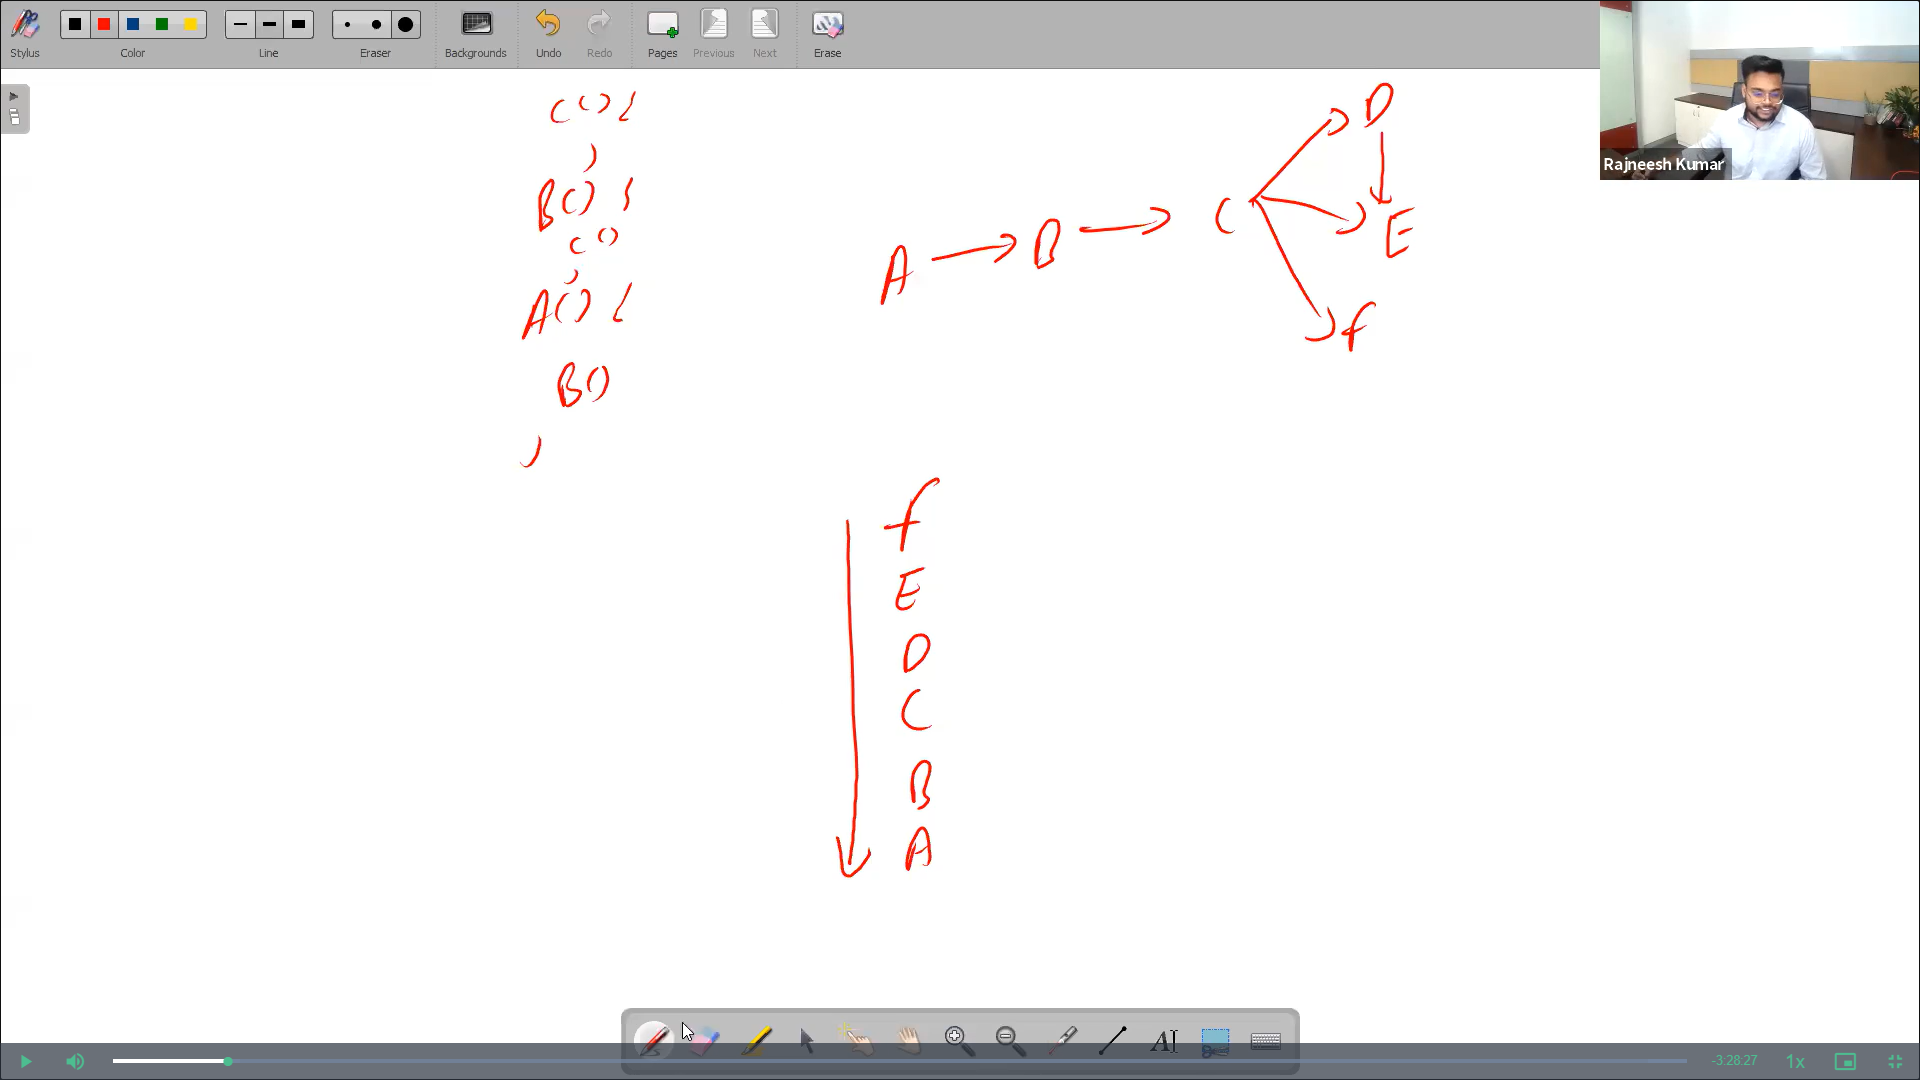 Stylus
Color
Line
Eraser
Backgrounds
Undo
Redo
Pages
Previous
Next
Erase
Rajneesh Kumar
C() {
}
B() {
C()
}
A() {
B()
}
A → B → C
D
E
f
f
E
D
C
B
A
AI
-3:28:27
1x